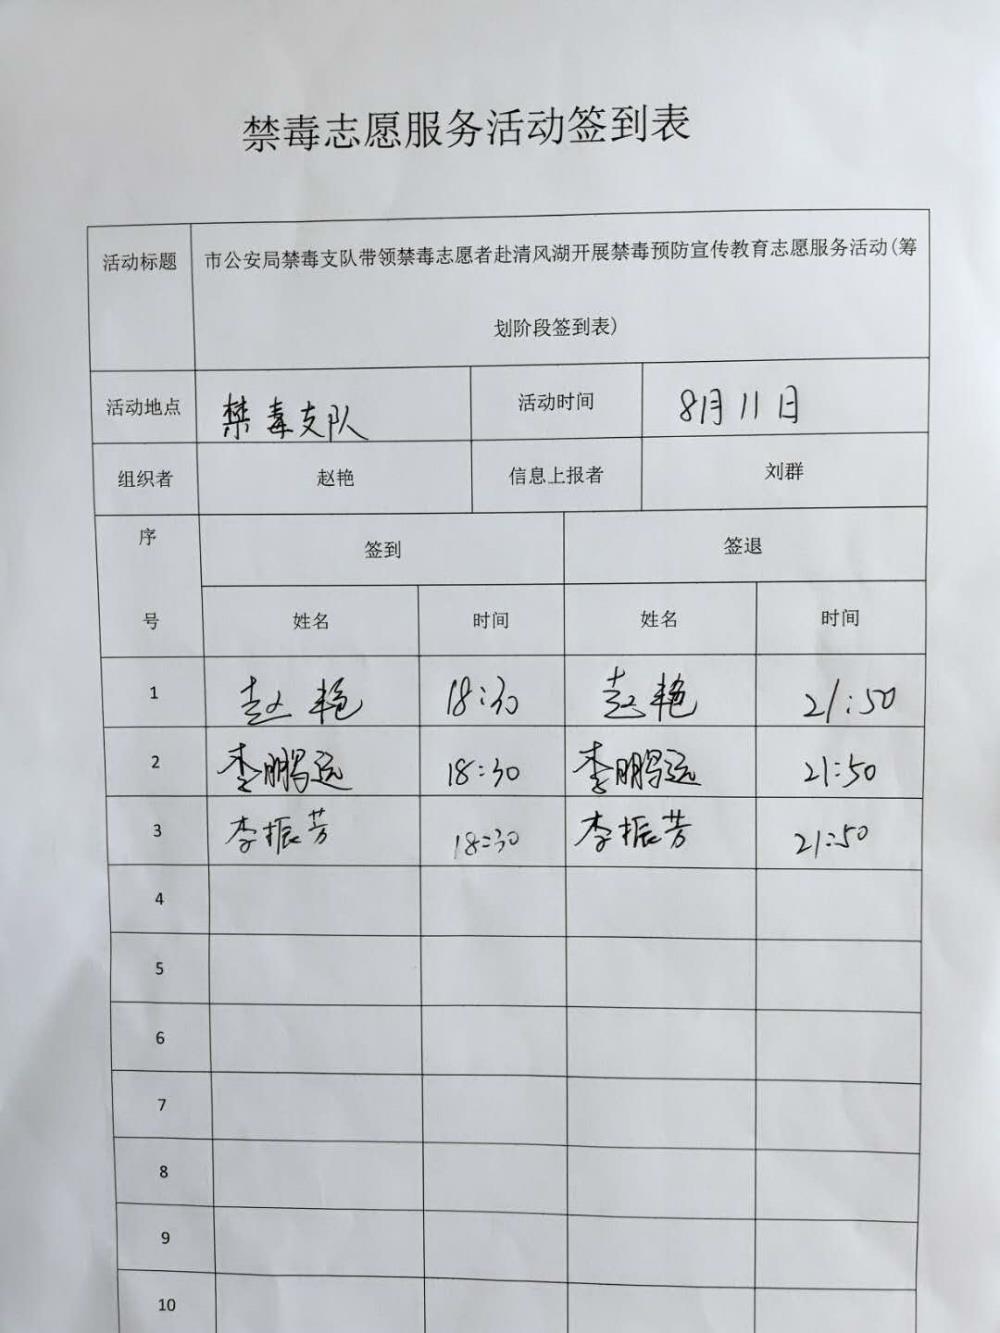 禁毒志愿服务活动签到表
活动标题 市公安局禁毒支队带领禁毒志愿者赴清风湖开展禁毒预防宣传教育志愿服务活动(筹
划阶段签到表)
活动地点 禁毒支队 活动时间 8月11日
组织者 赵艳 信息上报者 刘群
序 签到 签退
号 姓名 时间 姓名 时间
1 赵艳 18:30 赵艳 21:50
2 李鹏远 18:30 李鹏远 21:50
3 李振芳 18:30 李振芳 21:50
4
5
6
7
8
9
10